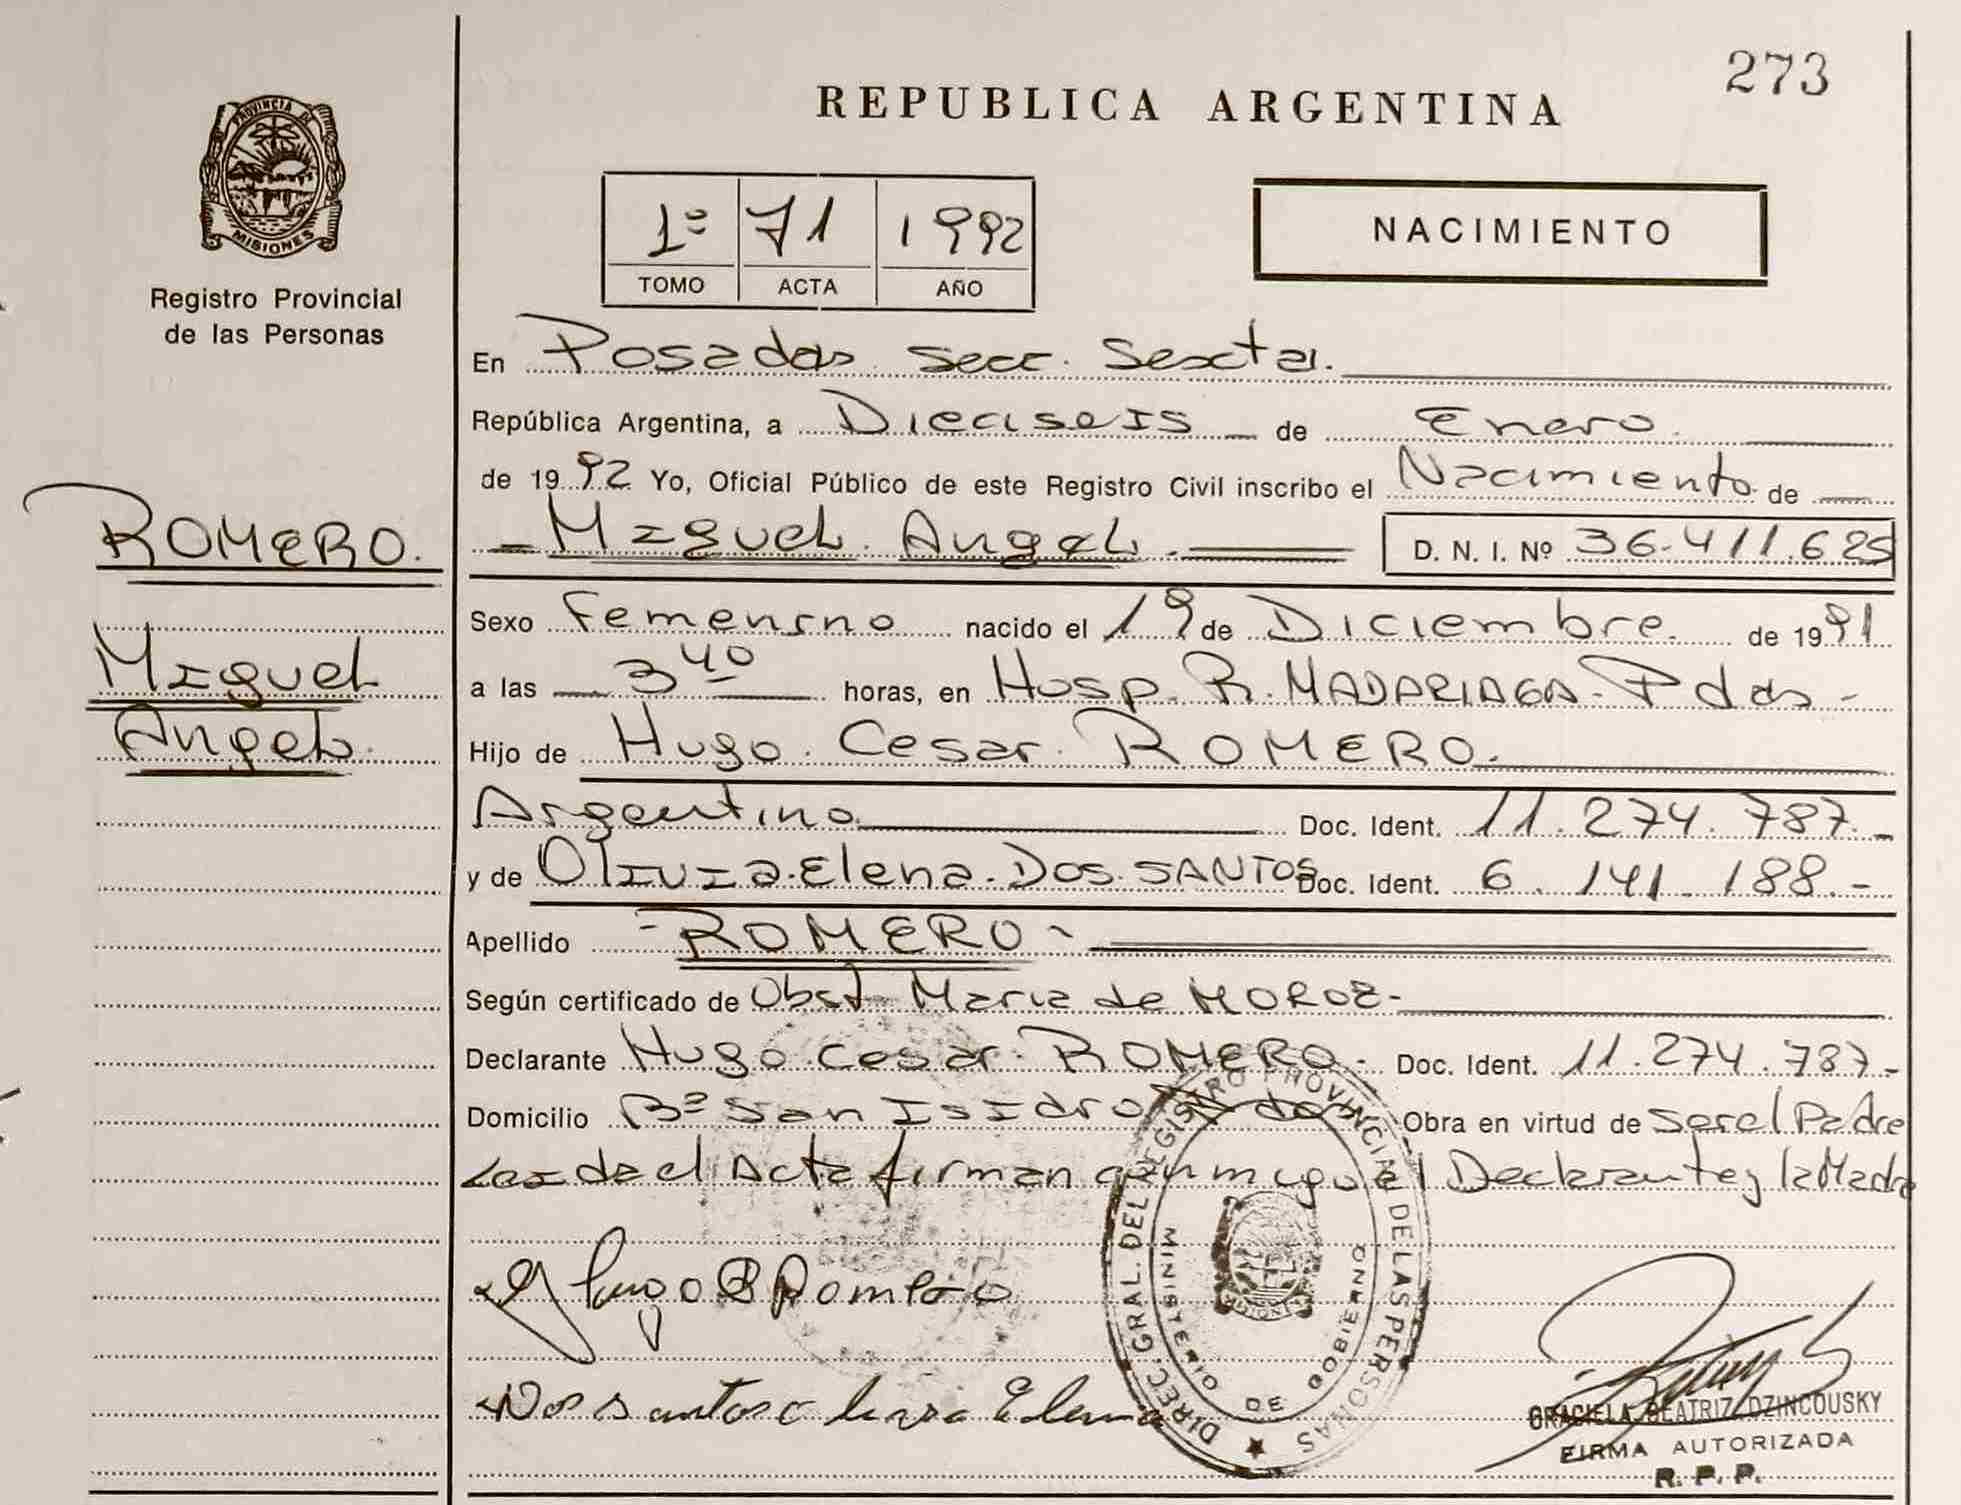 273
REPUBLICA ARGENTINA
PROVINCIA DE
MISIONES
Registro Provincial
de las Personas
1º 71 1992
TOMO ACTA AÑO
NACIMIENTO
En Posadas secc. Sexta.
República Argentina, a Dieciseis de Enero.
de 1992 Yo, Oficial Público de este Registro Civil inscribo el Nacimiento de
ROMERO.
Miguel Angel D. N. I. Nº 36.411.625
Sexo Femenino nacido el 19 de Diciembre. de 1991
Miguel
a las 3 40 horas, en Hosp. R. MADARIAGA - Pdas -
Angel.
Hijo de Hugo Cesar ROMERO.
Argentino Doc. Ident. 11.274.787.-
y de Olivia Elena Dos SANTOS Doc. Ident. 6.141.188.-
Apellido - ROMERO -
Según certificado de Obst Maria de MOROZ-
Declarante Hugo Cesar ROMERO- Doc. Ident. 11.274.787-
Domicilio Bº San Isidro Obra en virtud de ser el Padre
Leida el Acta firman conmigo el Declarante y la Madre
Hugo C Romero
Dos santos Elena
DIREC. GRAL. DEL REGISTRO PROVINCIAL DE LAS PERSONAS
MINISTERIO DE GOBIERNO
MISIONES
GRACIELA BEATRIZ DZINCOUSKY
FIRMA AUTORIZADA
R. P. P.